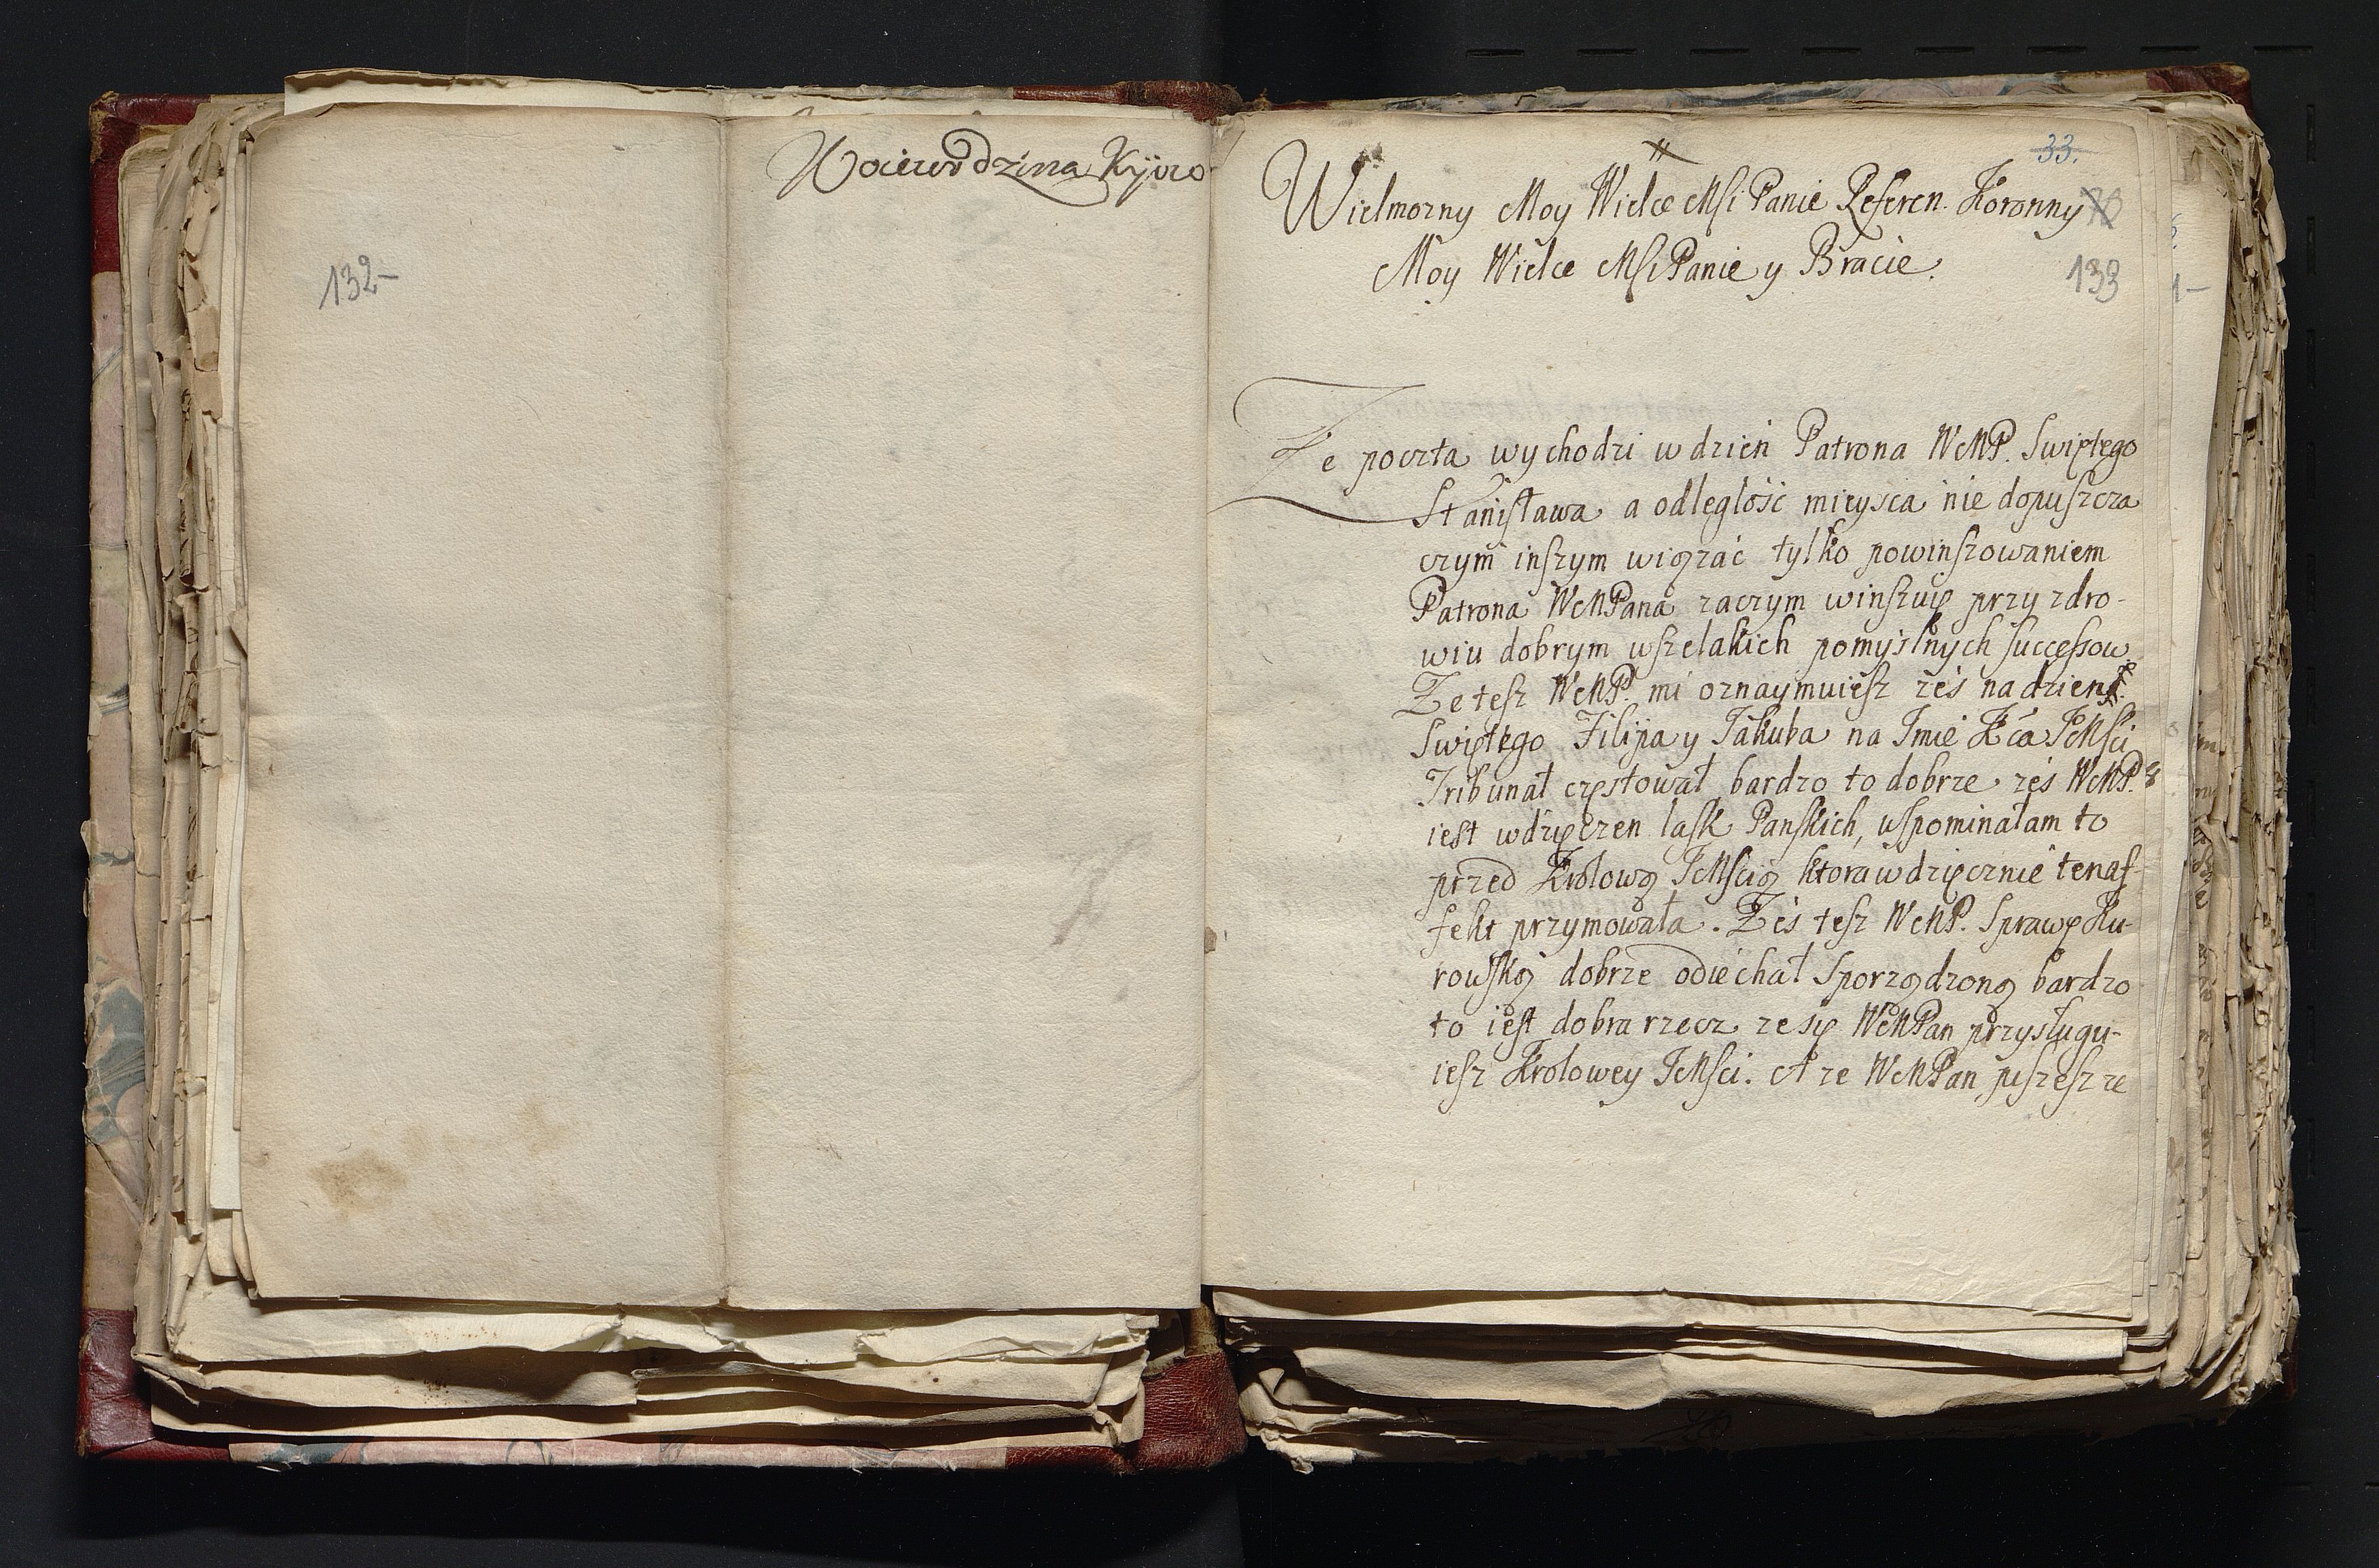 Woiewodzina Kyiow
132
33.
Wielmozny Moy Wielce MSi Panie Referen. Koronny
Moy Wielce MSiPanie y Bracie.
133
Ze poczta wychodzi w dzień Patrona WMP. Swiętego
Stanisława a odległość mieysca nie dopuszcza
czym inszym wiązać tylko powinszowaniem
Patrona WMPana zaczym winszuię przy zdro-
wiu dobrym wszelakich pomyslnych successow
Ze tesz WMP. mi oznaymuiesz ześ na dzien
Swiętego Filipa y Jakuba na Imie Kca JeMsci
Tribunał częstował bardzo to dobrze ześ WMP.
iest wdzięczen łask Panskich, wspominałam to
przed Krolową JeMscią ktora wdzięcznie ten af-
fekt przymowała. Ześ tesz WMP. Sprawę Ku-
rowską dobrze odiechał Sporządzoną bardzo
to iest dobra rzecz ze się WMPan przysługu-
iesz Krolowey JeMsci. A ze WMPan piszesz ze